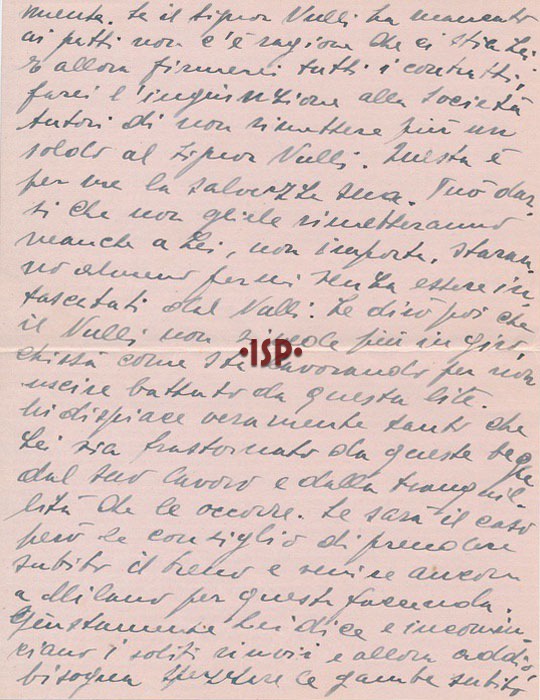 menta. Se il Signor Nulli ha mancato
ai patti non c'è ragione che ci stia Lei.
E allora firmerei tutti i contratti,
farei l'inquisizione alla Società
Autori di non rimettere più un
soldo al Signor Nulli. Questa è
per me la salvezza sua. Può dar
si che non gliele rimetteranno
neanche a Lei, non importa, staran
no almeno fermi senza essere in
tascati dal Nulli. Le dirò poi che
il Nulli non si vede più in giro
chissà come sta lavorando per non
uscire battuto da questa lite.
Mi dispiace veramente tanto che
Lei sia frastornato da queste beghe
dal suo lavoro e dalla tranquil-
lità che le occorre. Se sarà il caso
però Le consiglio di prendere
subito il treno e venire ancora
a Milano per questa faccenda.
Giustamente Lei dice e incomin-
ciano i soliti rinvii e allora addio
bisogna spezzare le gambe subito
·ISP·